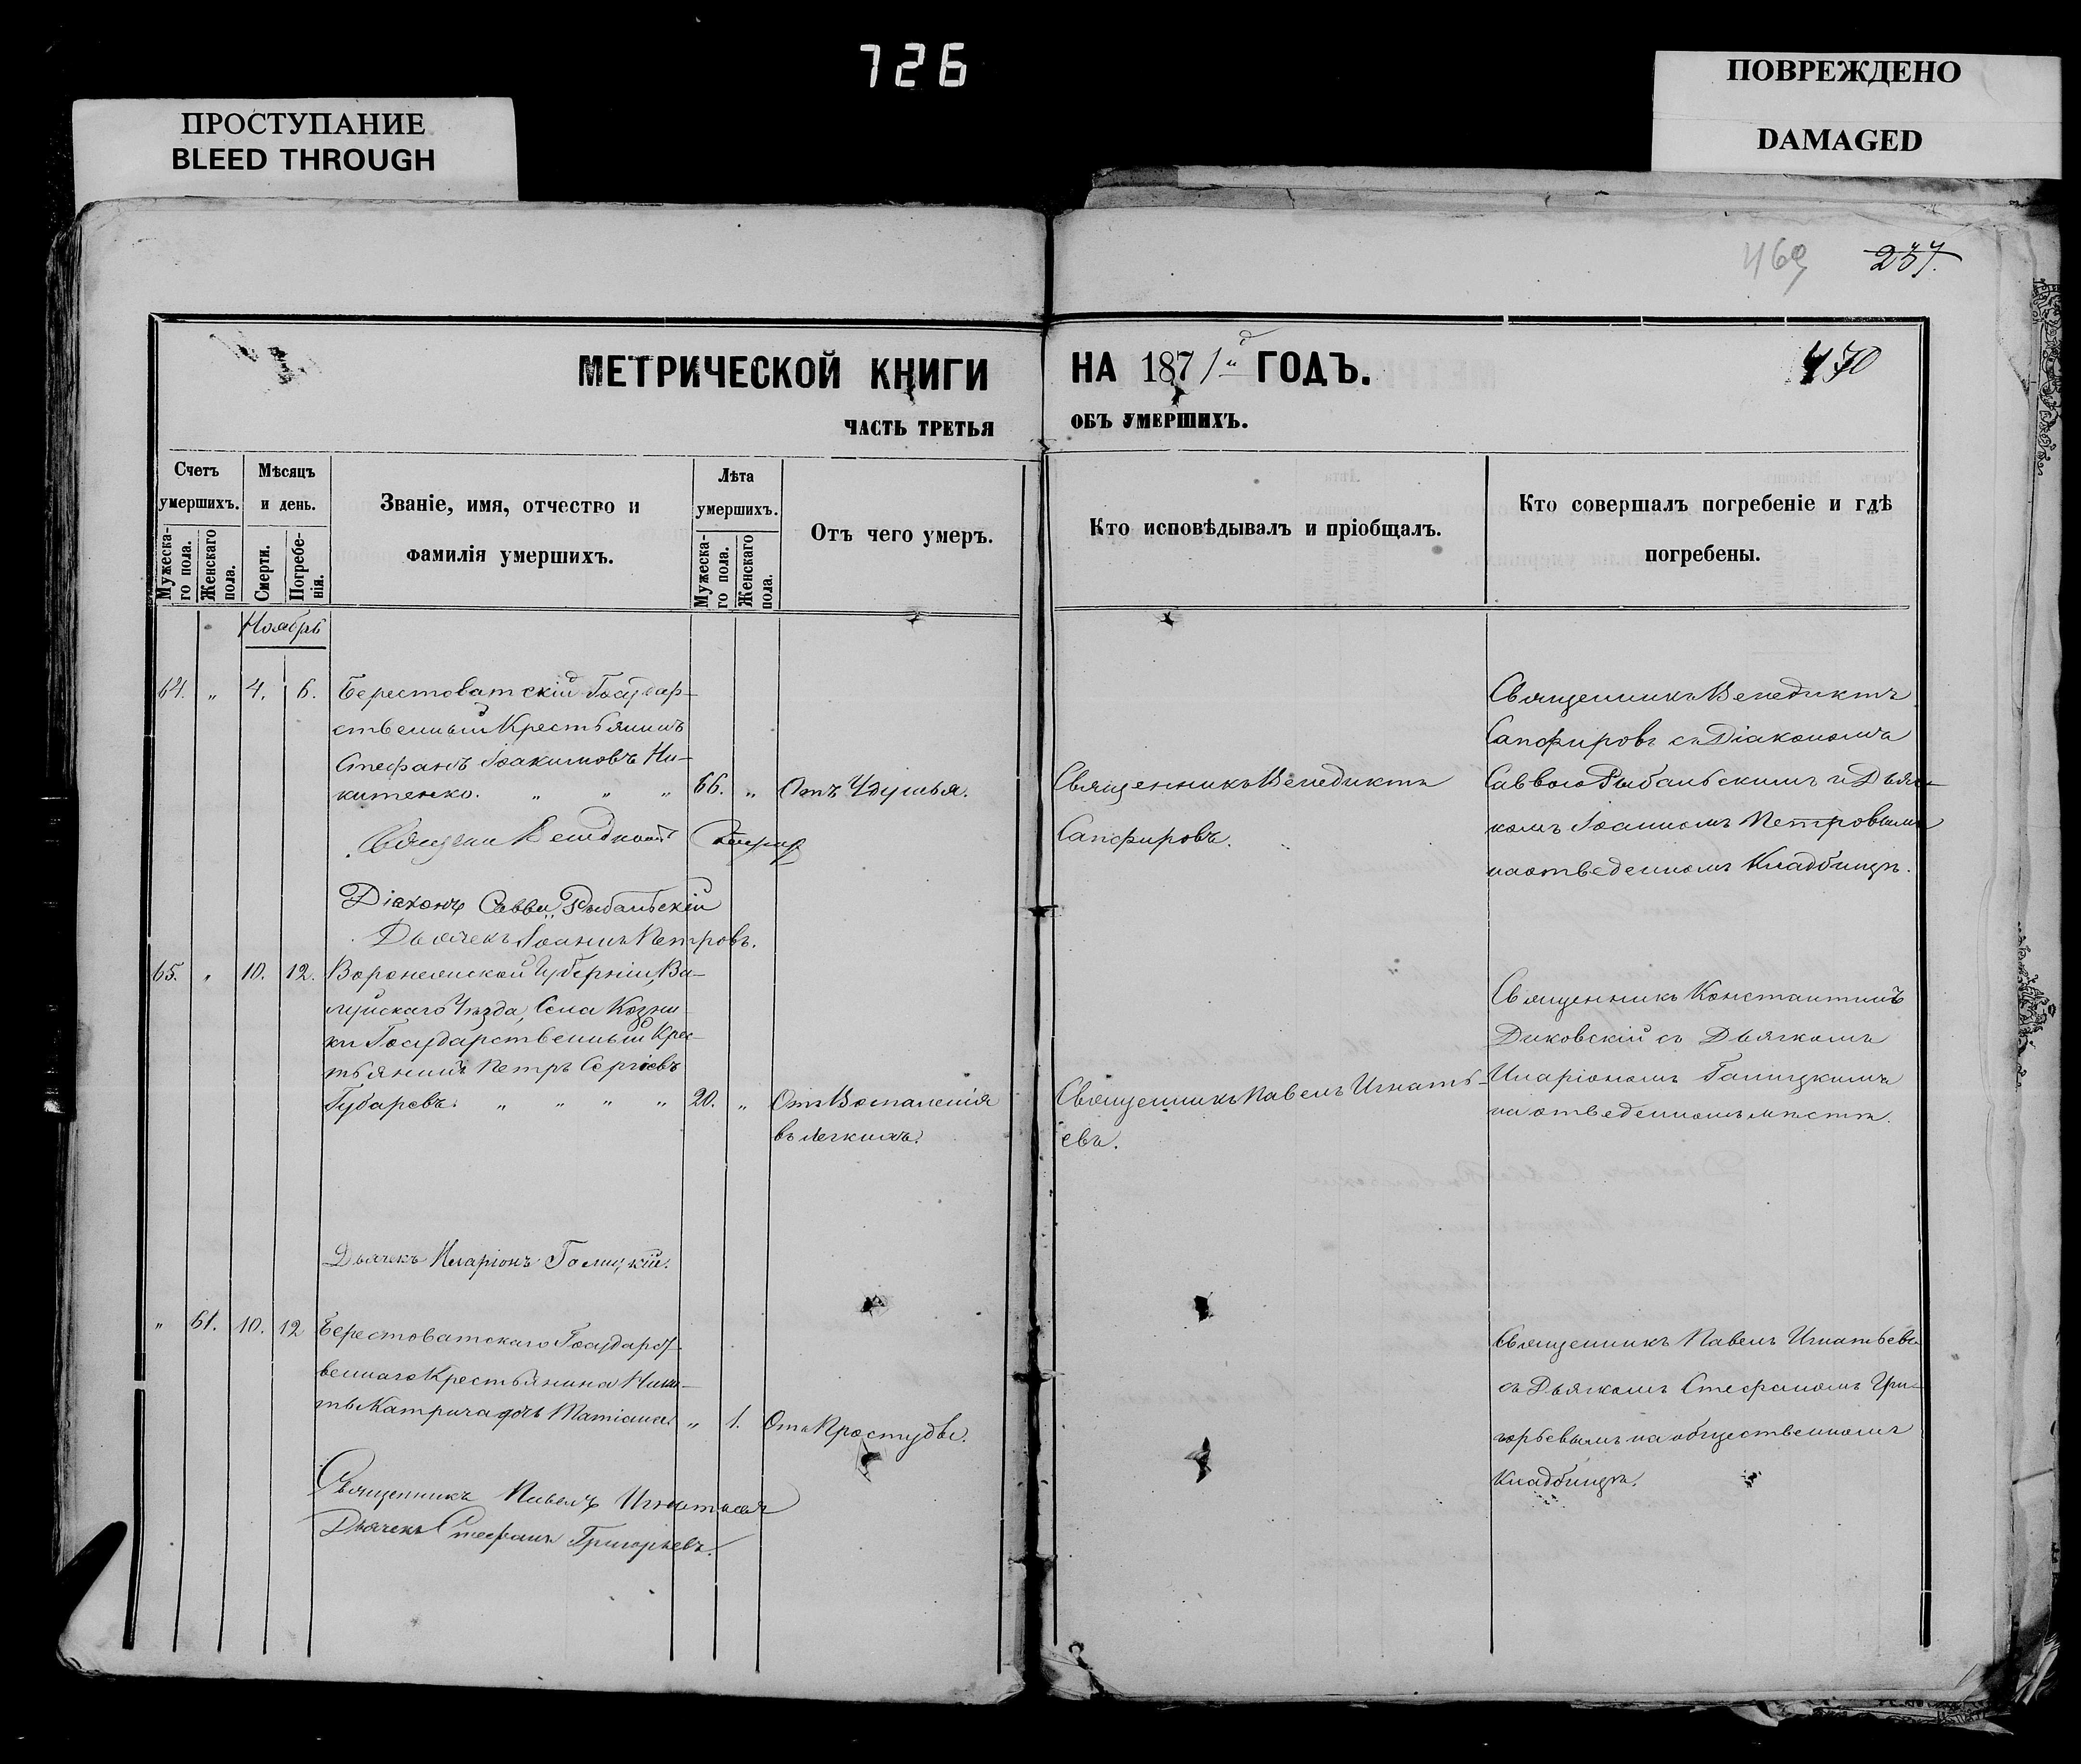 726
ПРОСТУПАНИЕ
BLEED THROUGH
ПОВРЕЖДЕНО
DAMAGED
469 237.
МЕТРИЧЕСКОЙ КНИГИ НА 1871й ГОДЪ.
470
ЧАСТЬ ТРЕТЬЯ ОБЪ УМЕРШИХЪ.
Счетъ умершихъ.
Мужеска-
го пола.
Женскаго
пола.
Мѣсяцъ
и день.
Смерти.
Погребе-
нія.
Званіе, имя, отчество и
фамилія умершихъ.
Лѣта
умершихъ.
Мужеска-
го пола.
Женскаго
пола.
Отъ чего умеръ.
Кто исповѣдывалъ и пріобщалъ.
Кто совершалъ погребеніе и гдѣ
погребены.
Ноябрь
64. „ 4. 6. Берестоватскій Государ-
ственный Крестьянинъ
Стефанъ Іоакимовъ Ни-
китенко. „ „ „ 66. „ Отъ Удушья.
Священникъ Венедиктъ
Сапфировъ.
Священникъ Венедиктъ
Сапфировъ съ Діакономъ
Саввою Рыбальскимъ и Дьяч-
комъ Іоанномъ Петровымъ
на отведенномъ Кладбищѣ.
Діаконъ Савва Рыбальскій
Дьячекъ Іоаннъ Петровъ.
65. „ 10. 12. Воронежской Губерніи, Ва-
луйскаго Уѣзда, Села Козин
ки Государственный Крес-
тьянинъ Петръ Сергіевъ
Губаревъ. „ „ „ „ 20. „ Отъ Воспаленія
въ легкихъ.
Священникъ Павелъ Игнать-
евъ.
Священникъ Константинъ
Диковскій съ Дьячкомъ
Иларіономъ Галицкимъ
на отведенномъ мѣстѣ.
Дьячекъ Иларіонъ Галицкій.
„ 61. 10. 12 Берестоватскаго Государст-
веннаго Крестьянина Ники-
ты Катрича дочь Татіана. „ 1. Отъ Простуды.
Священникъ Павелъ Игнатьевъ
съ Дьячкомъ Стефаномъ Гри-
горьевымъ на общественномъ
Кладбищѣ.
Священникъ Павелъ Игнатьевъ
Дьячекъ Стефанъ Григорьевъ.